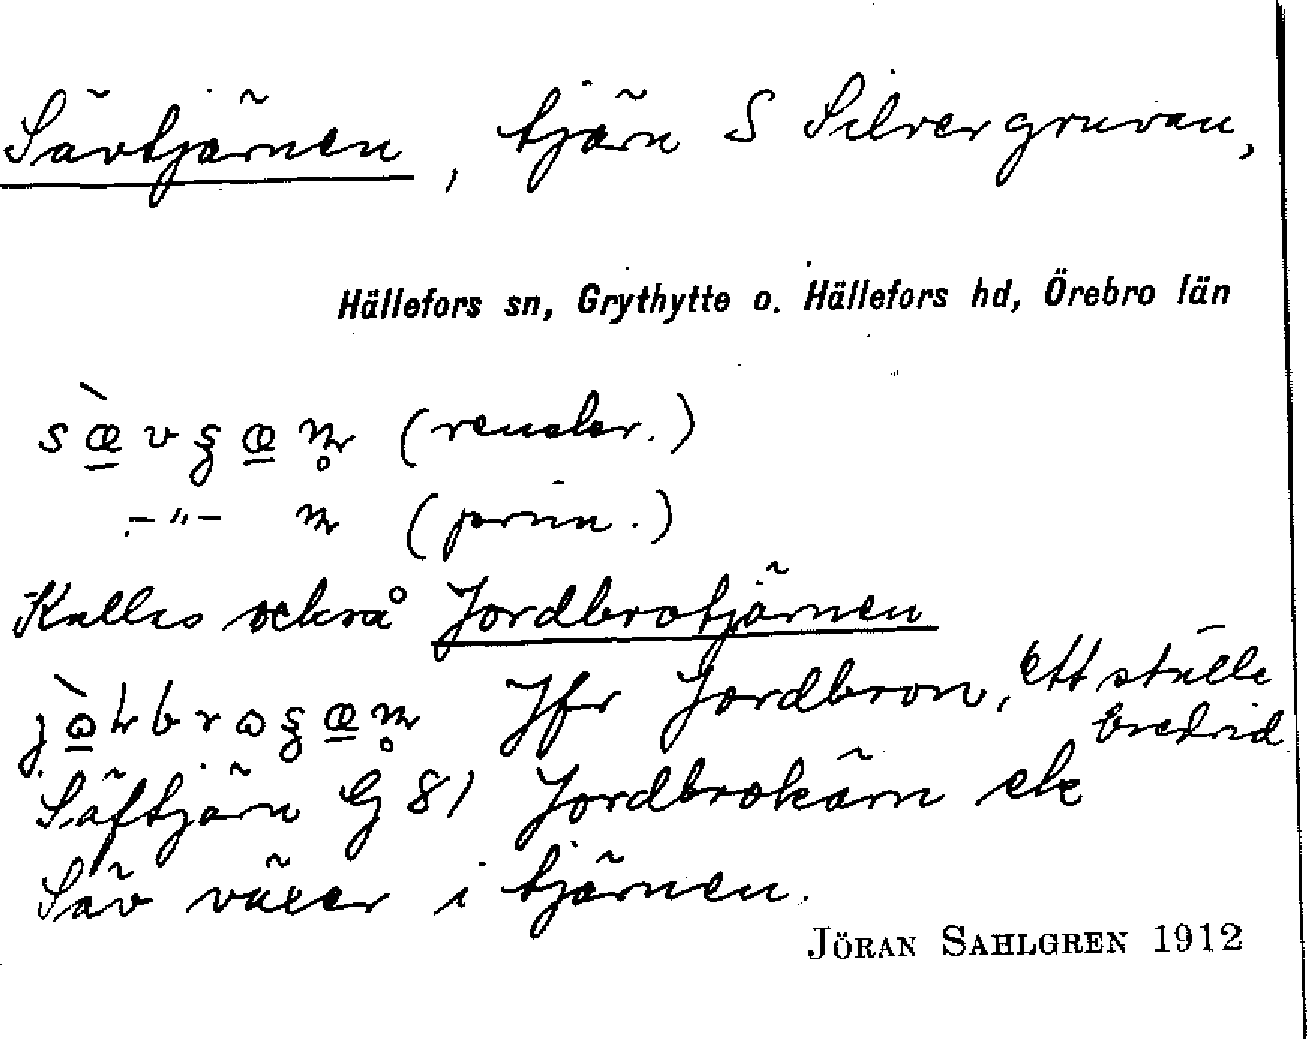 Sävtjärnen, tjärn S Silvergruvan,
Hällefors sn, Grythytte o. Hällefors hd, Örebro län
(rensler.)
-"- (
Kallas också Jordbrotjärnen
Jfr Jordbron, ett ställe
bredvid
Säftjärn G 81 Jordbrokärn ek
Säv växer i tjärnen.
JÖRAN SAHLGREN 1912